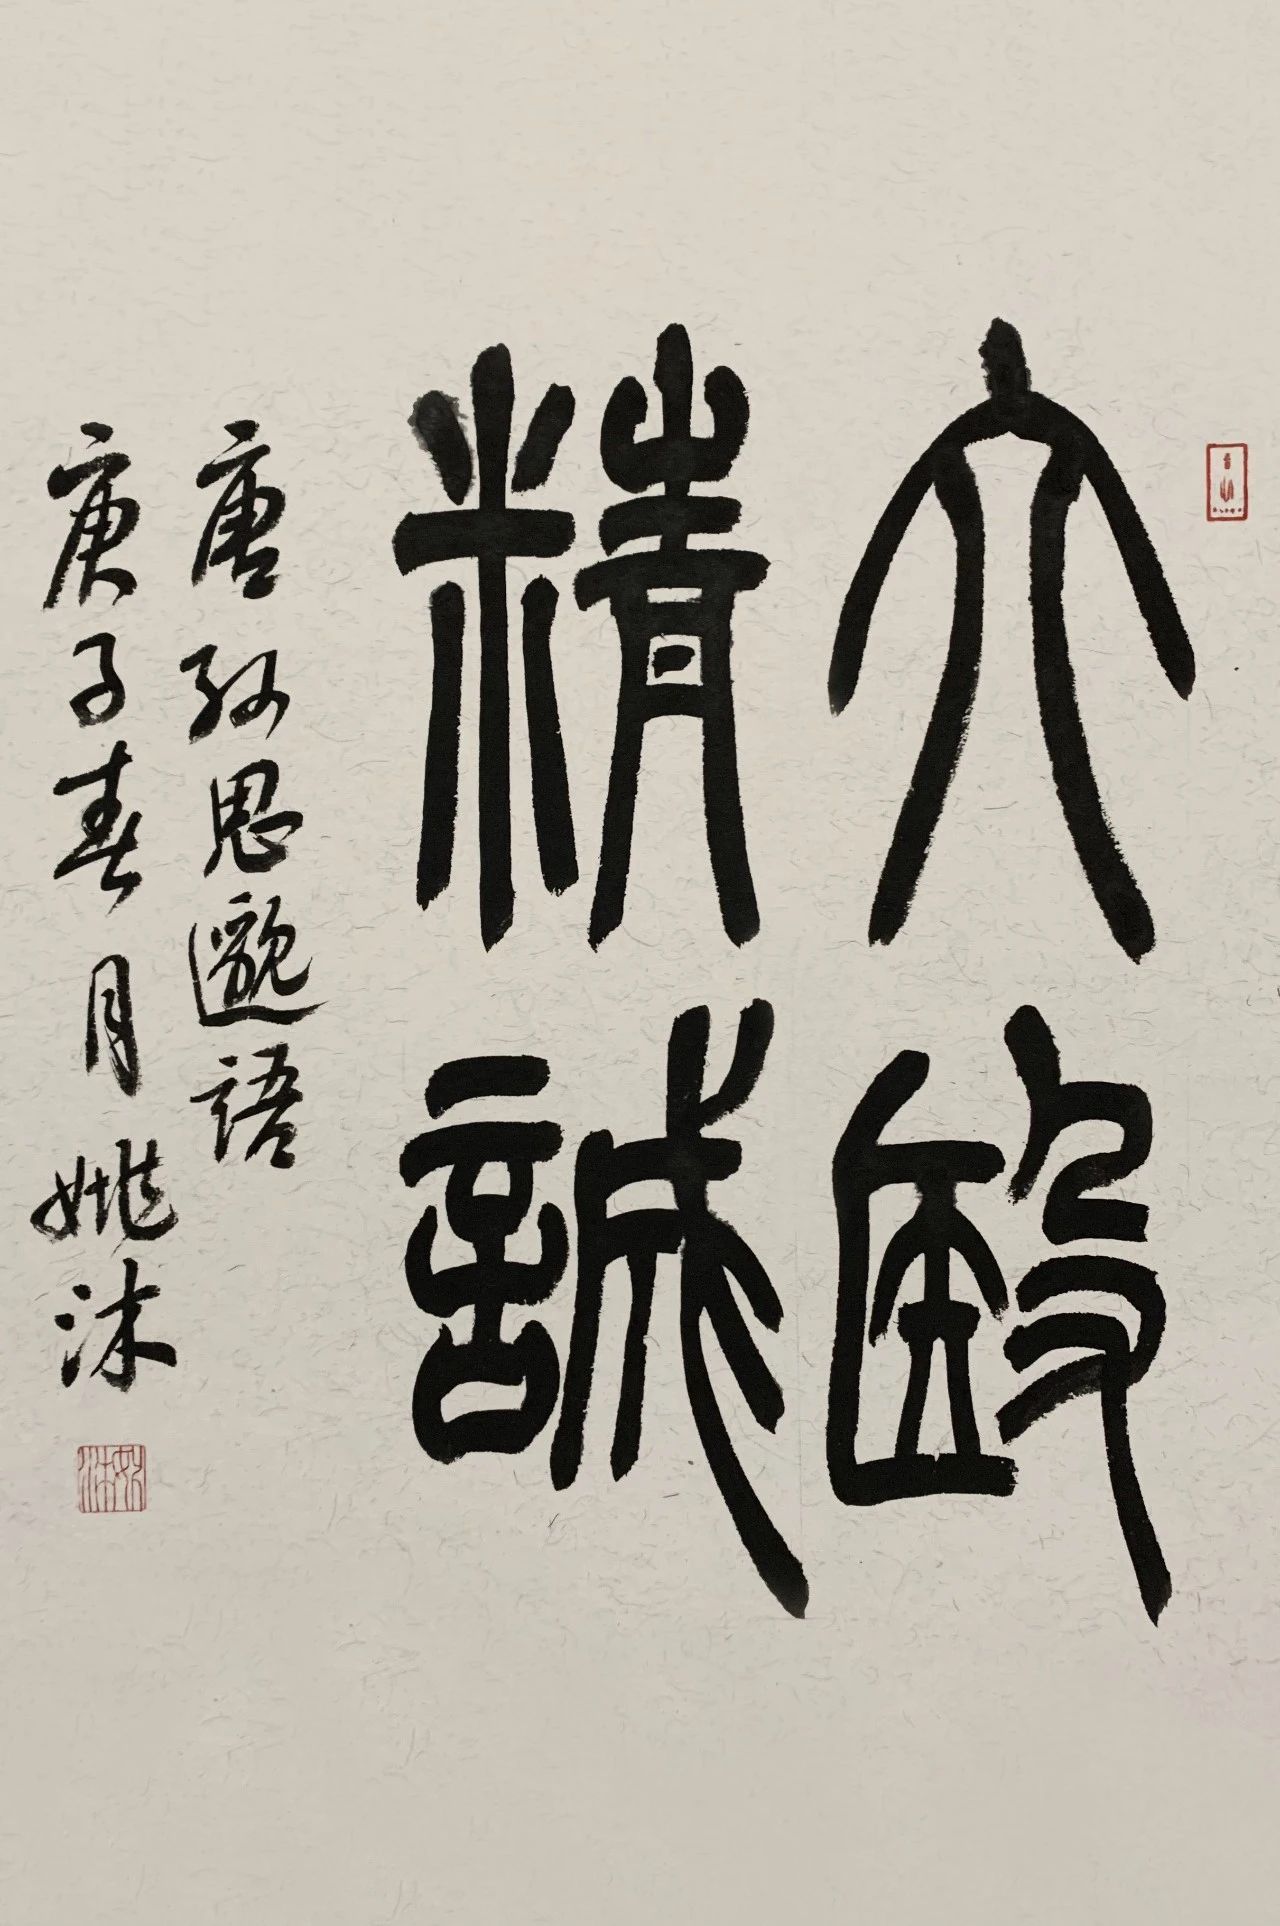 大殹
精誠
唐孙思邈語
庚子春月姚沐
姚沐